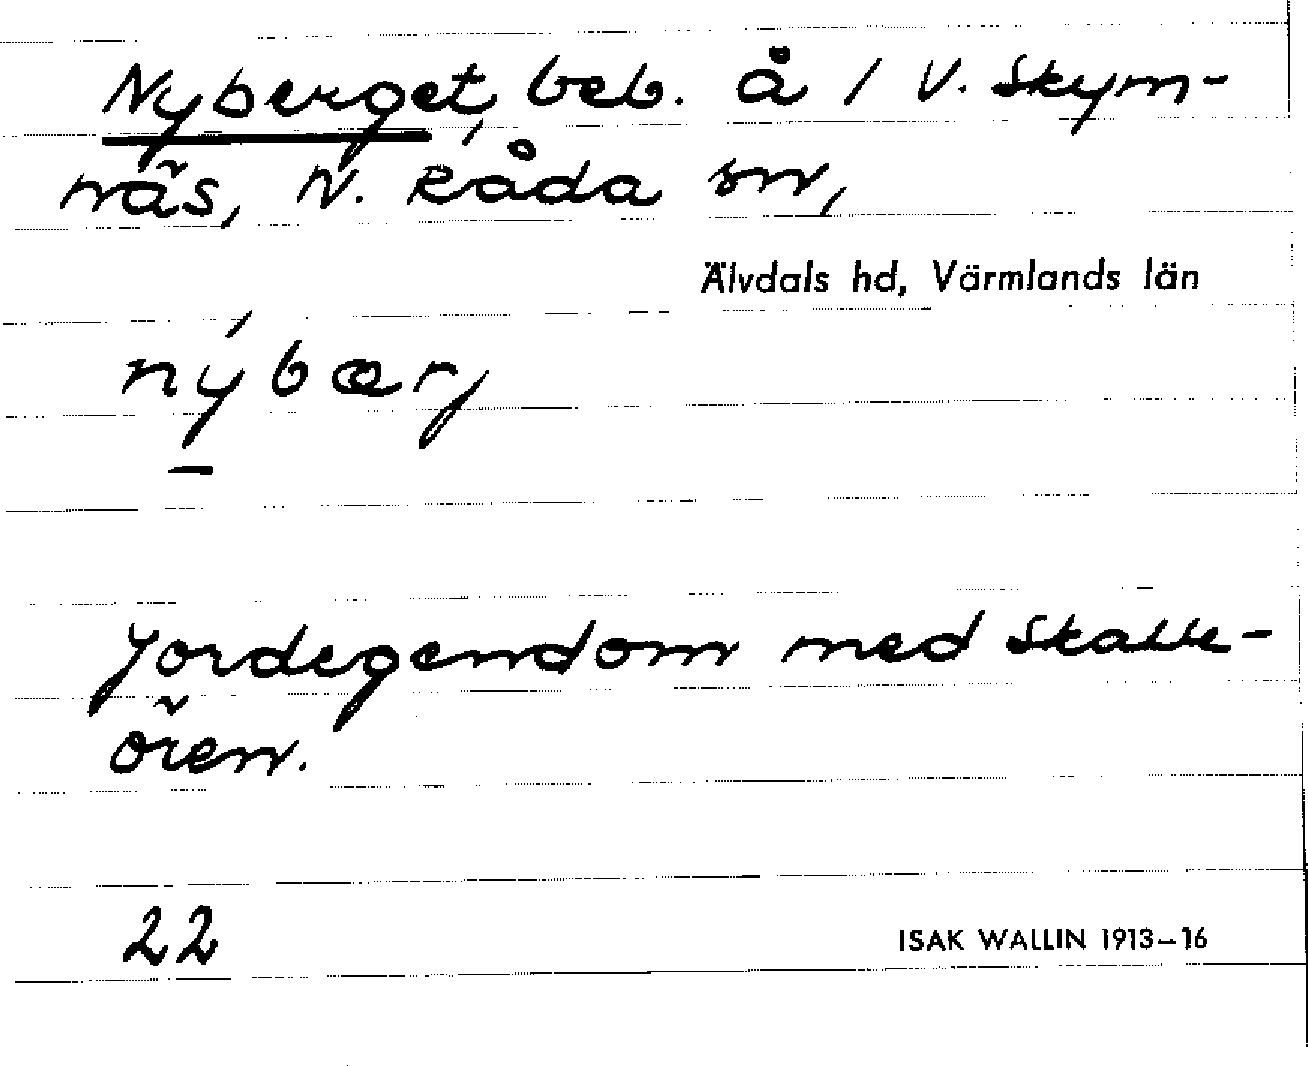 Nyberget, beb. å 1 V. Skym-
näs, N. Råda sn,
Älvdals hd, Värmlands län
nýbærj
Jordegendom med Skatte-
ören.
22
ISAK WALLIN 1913–16